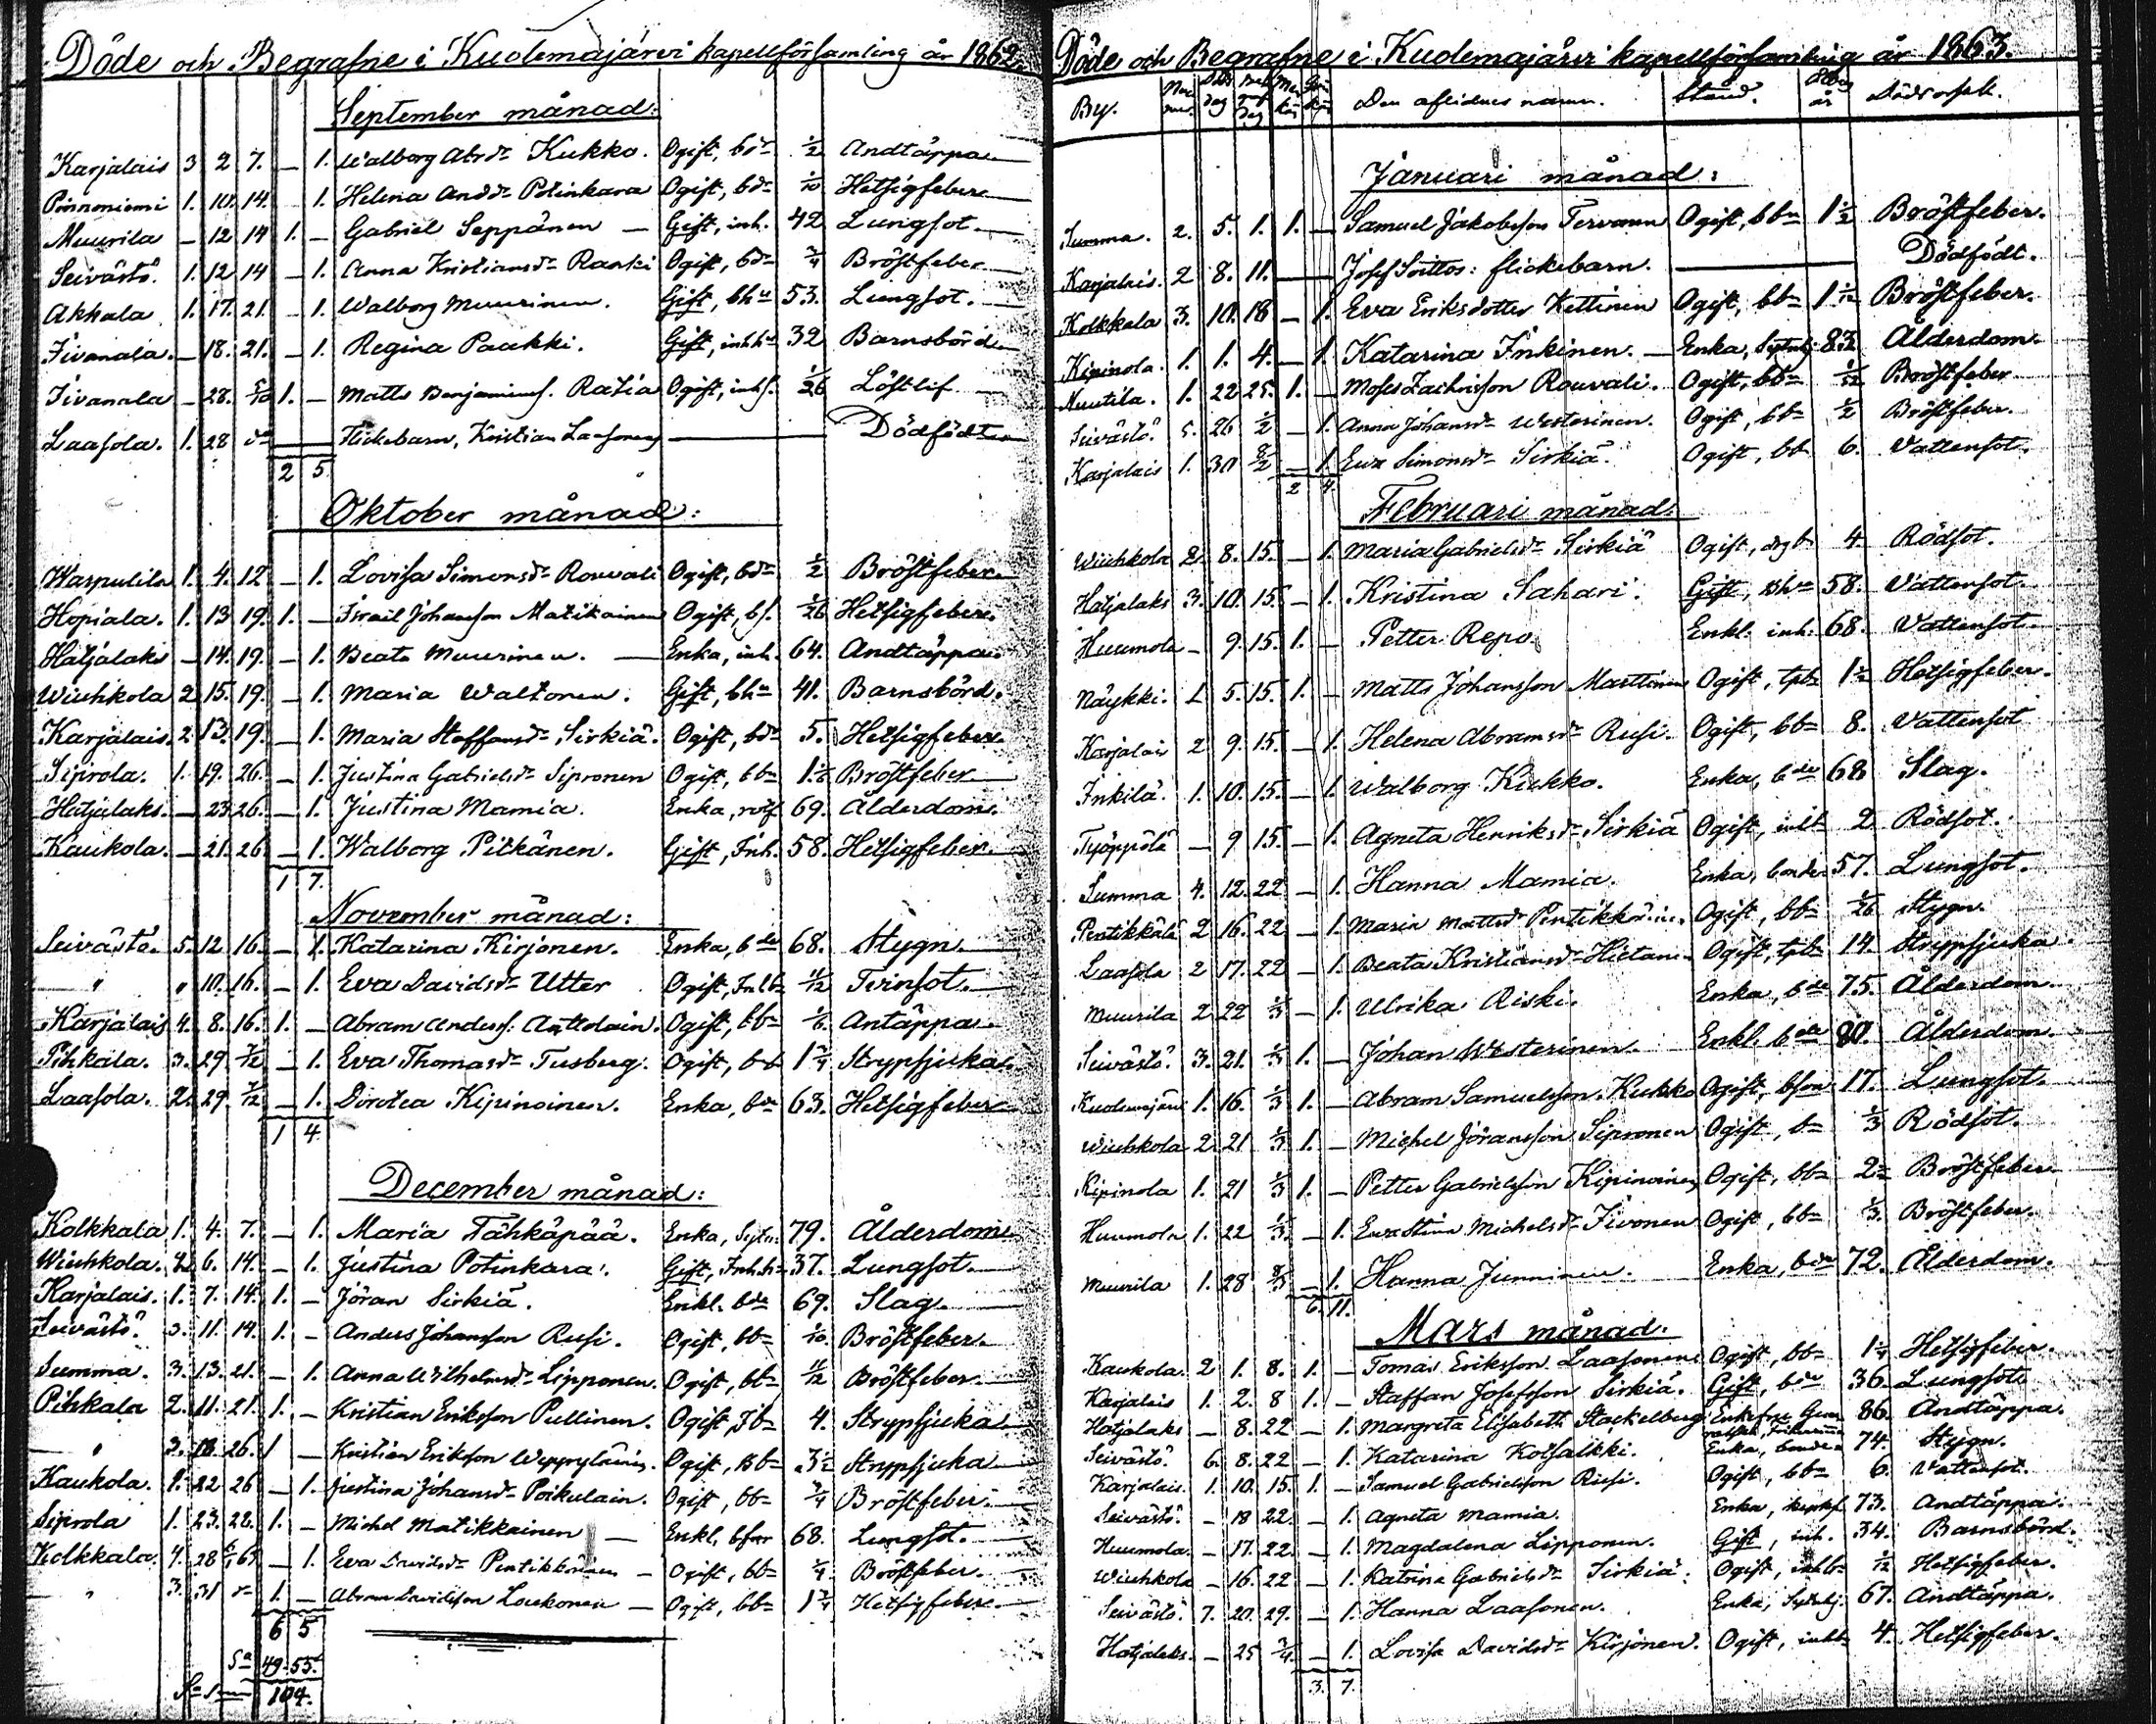 Döde och Begrafne i Kuolemajärvi kapellförsamling år 1862.
September månad:
Karjalais 3 2 7. — 1. Walborg Abrdr Kukko. Ogift, bdr 1/2 Andtäppa
1. 10. 14. 1. Helena Anddr Potinkara Ogift, bdr 1/10 Hetsigfeber
Muurila — 12 14 1. — Gabriel Seppänen — Gift, inh. 42 Lungsot.
Seivästö. 1. 12 14 — 1. Anna Kristiansdr Raski Ogift, bdr 3/4 Bröstfeber
Akkala 1. 17. 21. — 1. Walborg Muurinen. Gift, bhu 53. Lungsot.
Iivanala. — 18. 21. — 1. Regina Paukki. Gift, inhhu 32 Barnsbörd
Iivanala — 28. 5/10 1. — Matts Benjamins. Ratia Ogift, inhs. 1/26 Löstlif
Laasola. 1. 28 do Flickebarn, Kristian Laasonens Dödfödt
2 5
Oktober månad:
Warpulila 1. 4. 12 — 1. Lovisa Simonsdr Rouvali Ogift, bdr 1/2 Bröstfeber
Hopiala. 1. 13 19. 1. — Israil Johansson Matikainen Ogift, bs. 1/26 Hetsigfeber.
Hatjalaks — 14. 19. — 1. Beata Muurinen. — Enka, inh. 64. Andtäppa
Wiuhkola 2 15. 19. — 1. Maria Waltonen. Gift, bhu 41. Barnsbörd.
Karjalais. 2 13. 19. — 1. Maria Staffansdr Sirkiä. Ogift, bdr 5. Hetsigfeber
Siprola. 1. 19. 26. — 1. Justina Gabrielsdr Sipronen Ogift, bbn 1 1/2 Bröstfeber
Hatjalaks. — 23. 26. — 1. Justina Mamia. Enka, 69. Ålderdom.
Kaukola. — 21. 26. — 1. Walborg Pitkänen. Gift, Inh. 58. Hetsigfeber.
1 7.
November månad:
Seivästö. 5. 12 16. — 1. Katarina Kirjonen. Enka, bde 68. Stygn.
" " 10. 16. — 1. Eva Davidsdr Utter Ogift, Inlbn 11/12 Tvinsot.
Karjalais 4. 8. 16. 1. — Abram Anders. Anttolain. Ogift, bbn 1/6 Antäppa
Pihkala. 3. 29 7/12 — 1. Eva Thomasdr Tusberg. Ogift, bb 1 3/4 Strypsjuka
Laasola. 2. 29. 7/12 — 1. Dorotea Kipinoinen. Enka, bde 63. Hetsigfeber
1 4.
December månad:
Kolkkala 1. 4. 7. — 1. Maria Tähkäpää. Enka, Sytn. 79. Ålderdom
Wiuhkola. 2. 6. 14. — 1. Justina Potinkara. Gift, Inh.h 37. Lungsot.
Karjalais. 1. 7. 14. 1. — Jöran Sirkiä. Enkl. bde 69. Slag.
Seivästö. 3. 11. 14. 1. — Anders Johansson Rusi. Ogift, bbn 1/10. Bröstfeber.
Summa. 3. 13. 21. — 1. Anna Wilhelmsdr Lipponen. Ogift, bbn 11/12 Bröstfeber
Pihkala 2. 11. 21. 1. — Kristian Eriksson Pullinen. Ogift, Ibn 4. Strypsjuka
" 2. 18. 26. 1 — Kristian Eriksson Ogift, Bbn 3 1/2 Strypsjuka
Kaukola. 1. 22 26 — 1. Justina Johansdr Poikulain. Ogift, bbn 3/4 Bröstfeber.
Siprola 1. 23. 28. 1. — Michel Matikkainen — Enkl. bfar 68. Lungsot.
Kolkkala. 4. 28 63 — 1. Eva Davidsdr Pentikköinen — Ogift, bbn 1/4 Bröstfeber.
" 3. 31 do 1. — Abram Davidsson Loukonen — Ogift, bbn 1 3/4 Hetsigfeber.
6 5
Sa 49. 55.
104.
Döde och Begrafne i Kuolemajärvi kapellförsamling år 1863.
By. Den aflidnes namn. Stånd. år Dödsorsak.
Januari månad:
Summa. 2. 5. 1. 1. — Samuel Jakobsson Tervanen Ogift, bbn 1 1/2 Bröstfeber.
Karjalais. 2 8. 11. — Josef Soittos: flickebarn. — Dödfödt.
Kolkkala 3. 10. 18 — 1. Eva Eriksdotter Kettinen Ogift, bbn 1 1/12 Bröstfeber.
Kipinola. 1. 1. 4. — 1. Katarina Inkinen. — Enka, 83 Ålderdom.
Muurila. 1. 22 25. 1. — Moses Zachrisson Rouvali. Ogift, bbn 1/52 Bröstfeber
Seivästö. 5. 26 1/2 — 1. Anna Johansdr Westerinen. Ogift, bbn 1/2 Bröstfeber.
Karjalais 1. 30 8/2 — 1. Eva Simonsdr Sirkiä. Ogift, bb 6. Vattensot.
2 4.
Februari månad:
Wiuhkola 2. 8. 15. — 1. Maria Gabrielsdr Sirkiä Ogift, 4 Rödsot.
Hatjalaks 3. 10. 15. — 1. Kristina Sahari. Gift, Bhu 58. Vattensot.
Huumola — 9. 15. 1. — Petter Repo. Enkl. inh. 68. Vattensot.
Näykki. 1 5. 15. 1. — Matts Johansson Marttinen Ogift, tpbn 1 1/2 Hetsigfeber.
Karjalais 2 9. 15. — 1. Helena Abramsdr Rusi. Ogift, bbn 8. Vattensot
Inkilä. 1. 10. 15. — 1. Walborg Kukko. Enka, bde 68 Slag.
Työppölä — 9 15. — 1. Agneta Henriksdr Sirkiä Ogift, 2 Rödsot.
Summa 4. 12. 22 — 1. Hanna Mamia. Enka, bonde 57. Lungsot.
Pentikkälä 2 16. 22 — 1. Maria Mattsdr Pentikköinen. Ogift, bbn 1/26 Stygn.
Laasola 2 17. 22 — 1. Beata Kristiansdr Hietanen Ogift, tpbn 14. Strypsjuka.
Muurila 2 22 1/3 — 1. Ulrika Riski. Enka, bde 75. Ålderdom.
Seivästö. 3. 21. 1/3 1. — Johan Westerinen. Enkl. bde 80. Ålderdom.
Kuolemajärvi 1. 16. 1/3 1. — Abram Samuelsson Kukko Ogift, bson 17. Lungsot.
Wiuhkola 2. 21 1/3 1. — Michel Jöransson Sipronen Ogift, b 1/3 Rödsot.
Kipinola 1. 21 1/3 1. — Petter Gabrielsson Kipinoinen Ogift, bbn 2 Bröstfeber.
Huumola 1. 22 1/3 — 1. Eva Stina Michelsdr Iivonen Ogift, bbn 1/3. Bröstfeber.
Muurila 1. 28 8/3 — 1. Hanna Junninen. Enka, bde 72. Ålderdom.
6. 11.
Mars månad.
Kaukola. 2 1. 8. 1. — Tomas Eriksson Laasonen Ogift, bbn 1 1/4 Hetsigfeber.
Karjalais 1. 2. 8 1. — Staffan Josefsson Sirkiä. Gift, bde 36. Lungsot
Hatjalaks — 8. 22 — 1. Margreta Elisabeth Stackelberg Enkefru 86. Andtäppa.
Seivästö. 6. 8. 22 — 1. Katarina Kotsalkki. Enka, bonde 74. Stygn.
Karjalais. 1. 10. 15. 1. — Samuel Gabrielsson Rusi. Ogift, bbn 6. Vattensot.
Seivästö. — 18 22. — 1. Agneta Mamia. Enka, 73. Andtäppa.
Huumola. — 17. 22. — 1. Magdalena Lipponen. Gift, inh. 34. Barnsbörd.
Wiuhkola — 16. 22 — 1. Katrina Gabrielsdr Sirkiä. Ogift, inhbn 1/12 Hetsigfeber.
Seivästö. 7. 20. 29. — 1. Hanna Laasonen. Enka, 67. Andtäppa.
Hatjalaks. — 25 3/4 — 1. Lovisa Davidsdr Kirjonen. Ogift, inhbn 4. Hetsigfeber.
3. 7.